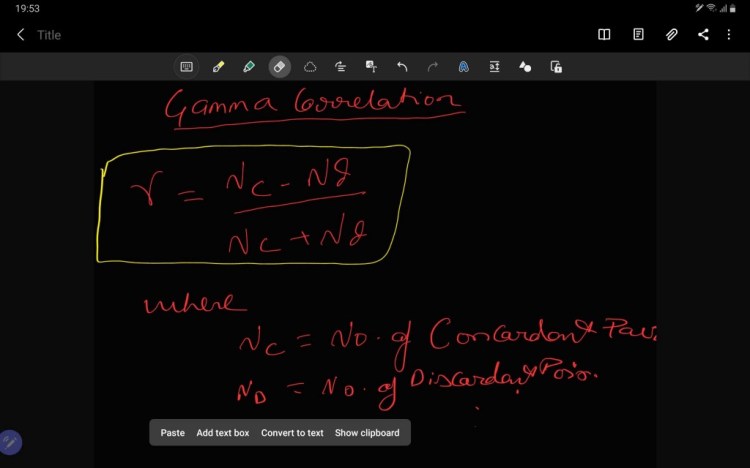 19:53
Title
Gamma Correlation
γ = Nc - Nd
Nc + Nd
where
Nc = No. of Concordant Pair
ND = No. of Discordant Pair.
Paste Add text box Convert to text Show clipboard